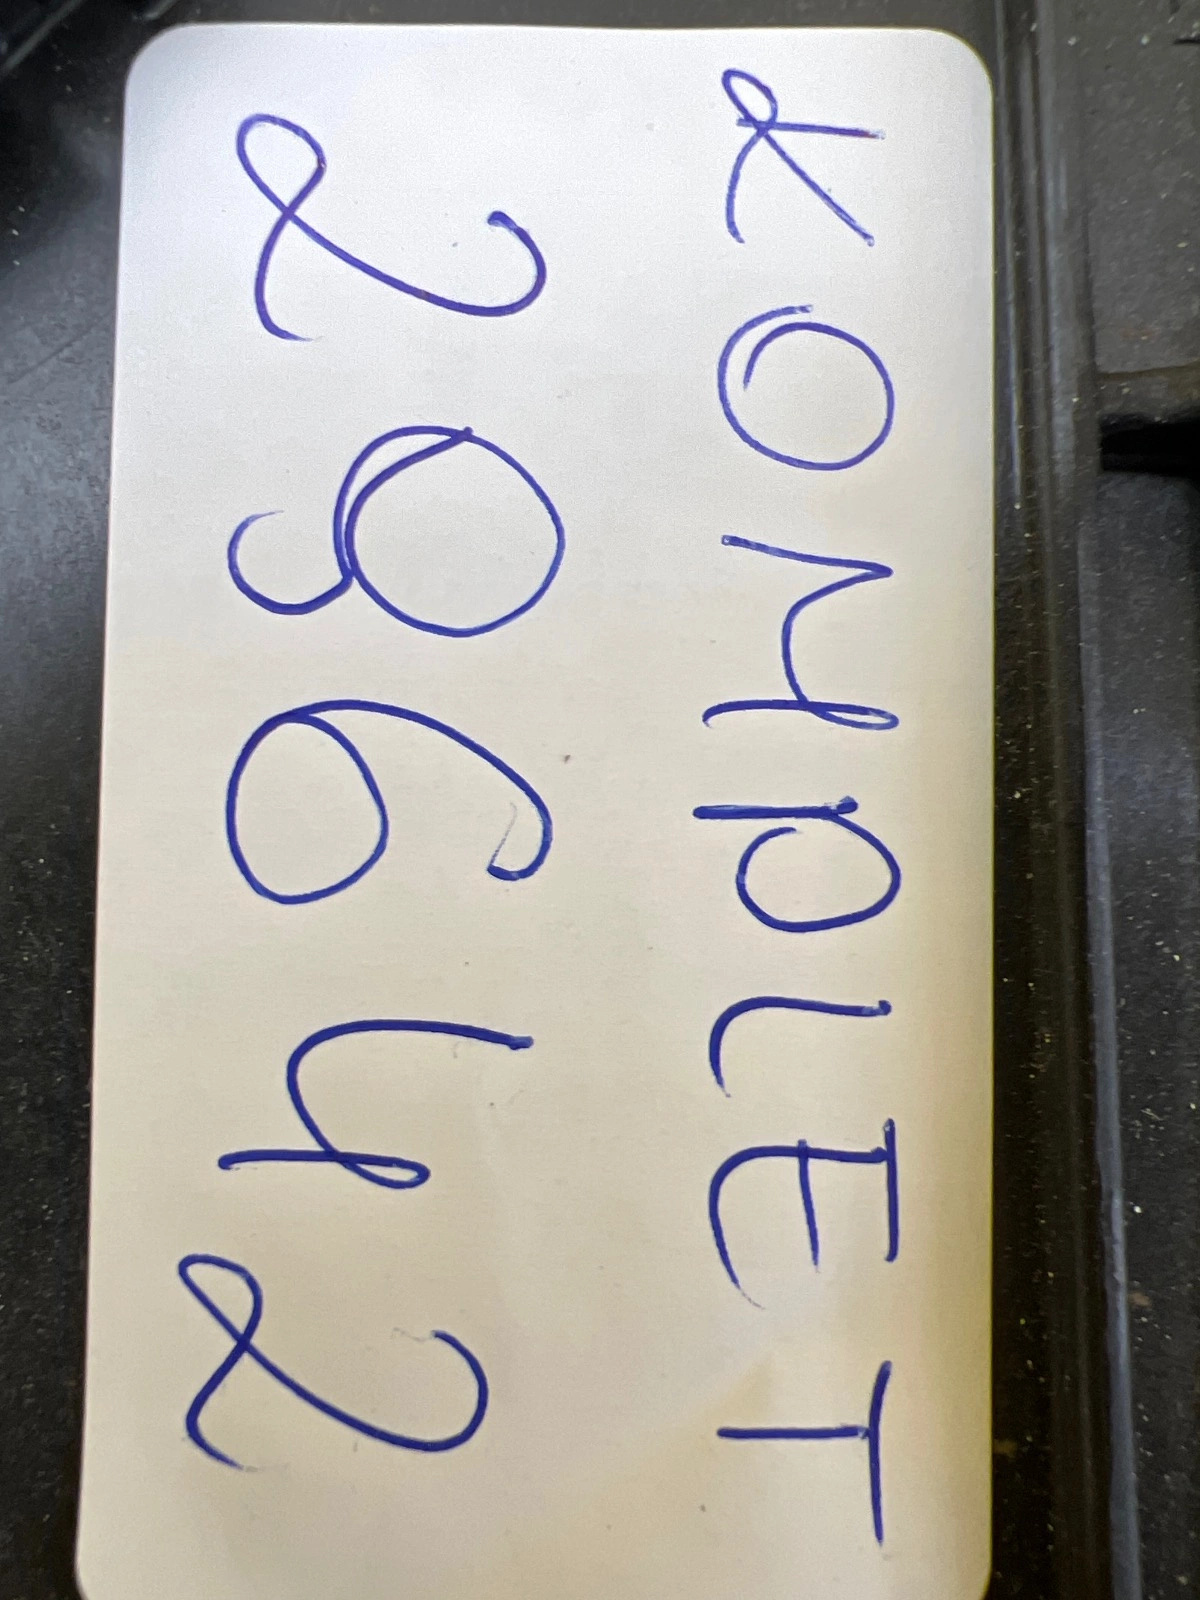 KOMPLET
29642